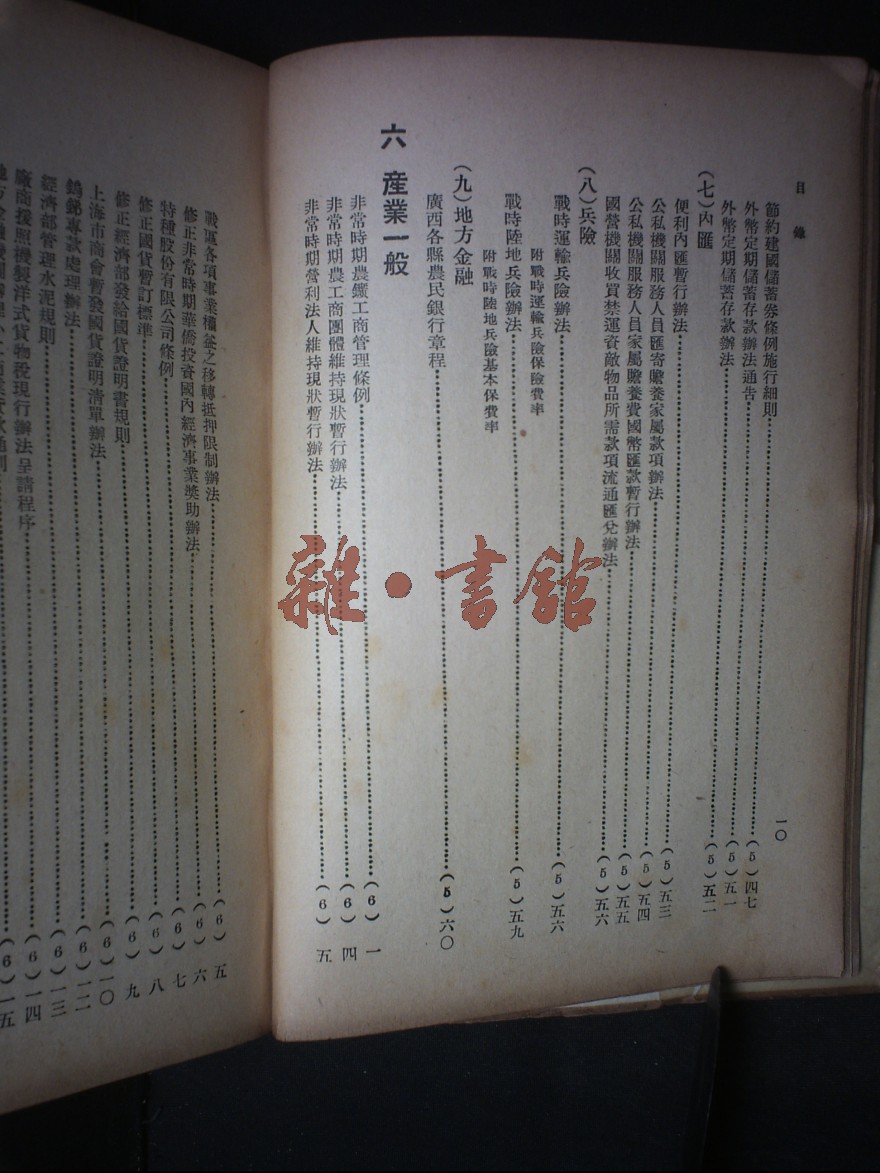 目錄
一〇
節約建國儲蓄券條例施行細則……(5)四七
外幣定期儲蓄存款辦法通告……(5)五一
外幣定期儲蓄存款辦法……(5)五二
(七)內匯
便利內匯暫行辦法……(5)五三
公私機關服務人員匯寄贍養家屬款項辦法……(5)五四
公私機關服務人員家屬贍養費國幣匯款暫行辦法……(5)五五
國營機關收買禁運資敵物品所需款項流通匯兌辦法……(5)五六
(八)兵險
戰時運輸兵險辦法……(5)五六
附戰時運輸兵險保險費率
戰時陸地兵險辦法……(5)五九
附戰時陸地兵險基本保費率
(九)地方金融
廣西各縣農民銀行章程……(5)六〇
六 產業一般
非常時期農鑛工商管理條例……(6)一
非常時期農工商團體維持現狀暫行辦法……(6)四
非常時期營利法人維持現狀暫行辦法……(6)五
戰區各項事業權益之移轉抵押限制辦法……(6)五
修正非常時期華僑投資國內經濟事業獎助辦法……(6)六
特種股份有限公司條例……(6)七
修正國貨暫訂標準……(6)八
修正經濟部發給國貨證明書規則……(6)九
上海市商會暫發國貨證明清單辦法……(6)一〇
鎢銻專款處理辦法……(6)一二
經濟部管理水泥規則……(6)一三
廠商援照機製洋式貨物稅現行辦法呈請程序……(6)一四
(6)一五
雜·書館